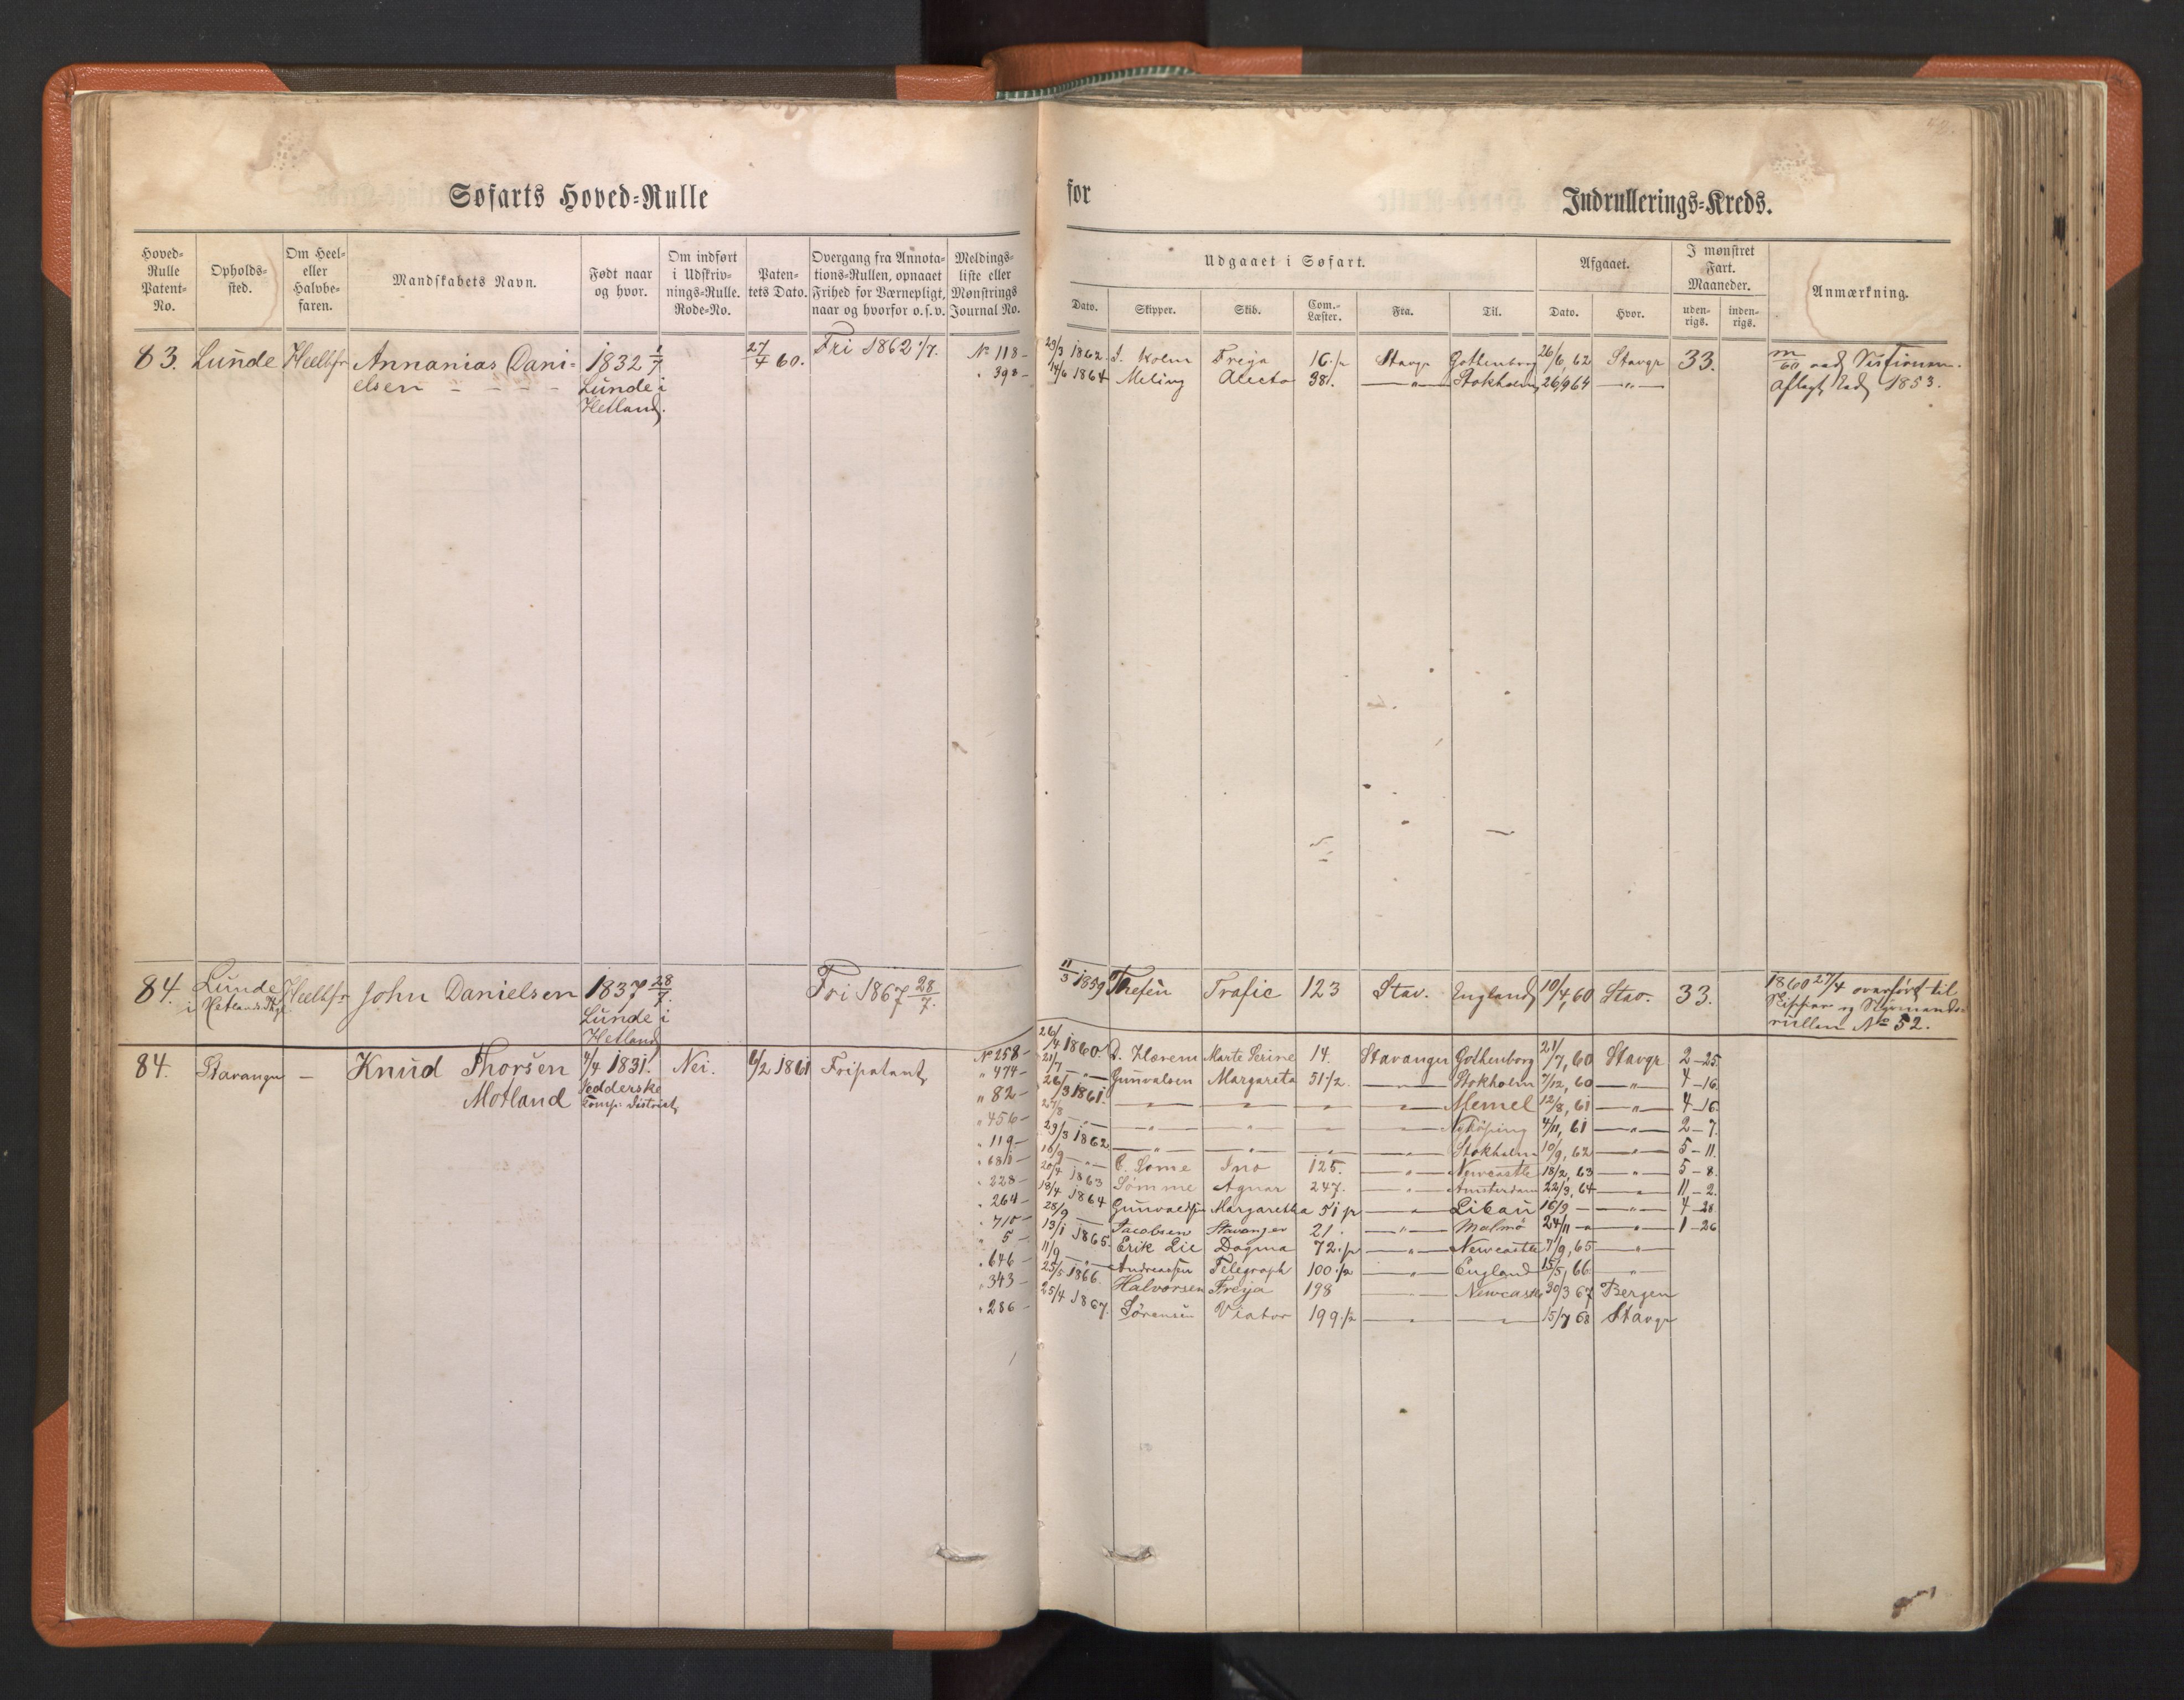 Søfarts Hoved-Rulle for Indrullerings-Kreds.
Hoved-Rulle Patent-No. | Opholds-sted. | Om Heel- eller Halvbe-faren. | Mandskabets Navn. | Født naar og hvor. | Om indført i Udskriv-nings-Rulle. Rode-No. | Paten-tets Dato. | Overgang fra Annota-tions-Rullen, opnaaet Frihed for Værnepligt, naar og hvorfor o.s.v. | Meldings-liste eller Mønstrings Journal No.
Udgaaet i Søfart. | Afgaaet. | I mønstret Fart. Maaneder. | Anmærkning.
Dato. | Skipper. | Skib. | Com.-Læster. | Fra. | Til. | Dato. | Hvor. | uden-rigs. | inden-rigs.
83. Lunde Heelbf Annanias Dani- 1832 1/7 27/4 60. Fri 1862 1/7. No 118 - 29/3 1862. Holm Freya 16 1/2 Stavgr Gothenborg 26/6, 62 Stavgr 33.
elsen - - - - Lunde i " 398 - 14/6 1864 Meling Alecto 38 1. — " — Stokholm 26/9 64 — " — aflagt Eed 1853.
Hetland.
84. Lunde Heelbf John Danielsen 1837 28/7. Fri 1867 28/7. 11/3 1859 Trafic 123 Stav. England 10/4, 60 Stav. 33. 1860 27/4 overført til
i Hetlands Lunde i Skipper og Styrmands-
Hetland rullen No 52.
84. Stavanger — Knud Thorsen 4/4 1831. Nei. 6/2 1861 Fripatent No 258 - 26/4 1860. D. Haaven Marte Serine 14. Stavanger Gothenborg 21/7, 60 Stavgr 2-25.
Motland Vedderske " 474 - 21/7 — " — Gunvalsen Margareta 51 1/2. — " — Stokholm 7/12, 60 — " — 4-16.
Comp: District " 82 - 26/3 1861. — " — — " — — " — — " — Memel 12/8, 61 — " — 4-16.
" 456 - 27/8 — " — — " — — " — — " — — " — Nykøping 4/11, 61 — " — 2-7.
" 119 - 29/3 1862 — " — — " — — " — — " — Stokholm 10/9, 62 — " — 5-11.
" 681 - 16/9 — " — C. Some Ino 125. — " — Newcastle 18/2, 63 — " — 5-8.
" 228 - 20/4 1863 Sømme Agnar 247. — " — Amsterdam 22/3, 64 — " — 11-2.
" 264 - 18/4 1864 Gunvaldsen Margaretha 51 1/2 — " — Libau 16/9 — — " — 4-28
" 710 - 28/9 — Jacobsen Stavanger 21. — " — Malmø 24/11 — — " — 1-26
" 5 - 13/1 1865. Erik Lie Dagma 72 1/2 — " — Newcastle 7/9, 65 — " —
" 646 - 11/9 — " — Andreassen Telegraph 100 1/2 — " — England 15/5, 66. — " —
" 343 - 25/5 1866. Halvorsen Freya 198 — " — Newcastle 30/3 67 Bergen
" 286 - 25/4 1867. Sørensen Viator 199 1/2 — " — — " — 15/7 68 Stavgr